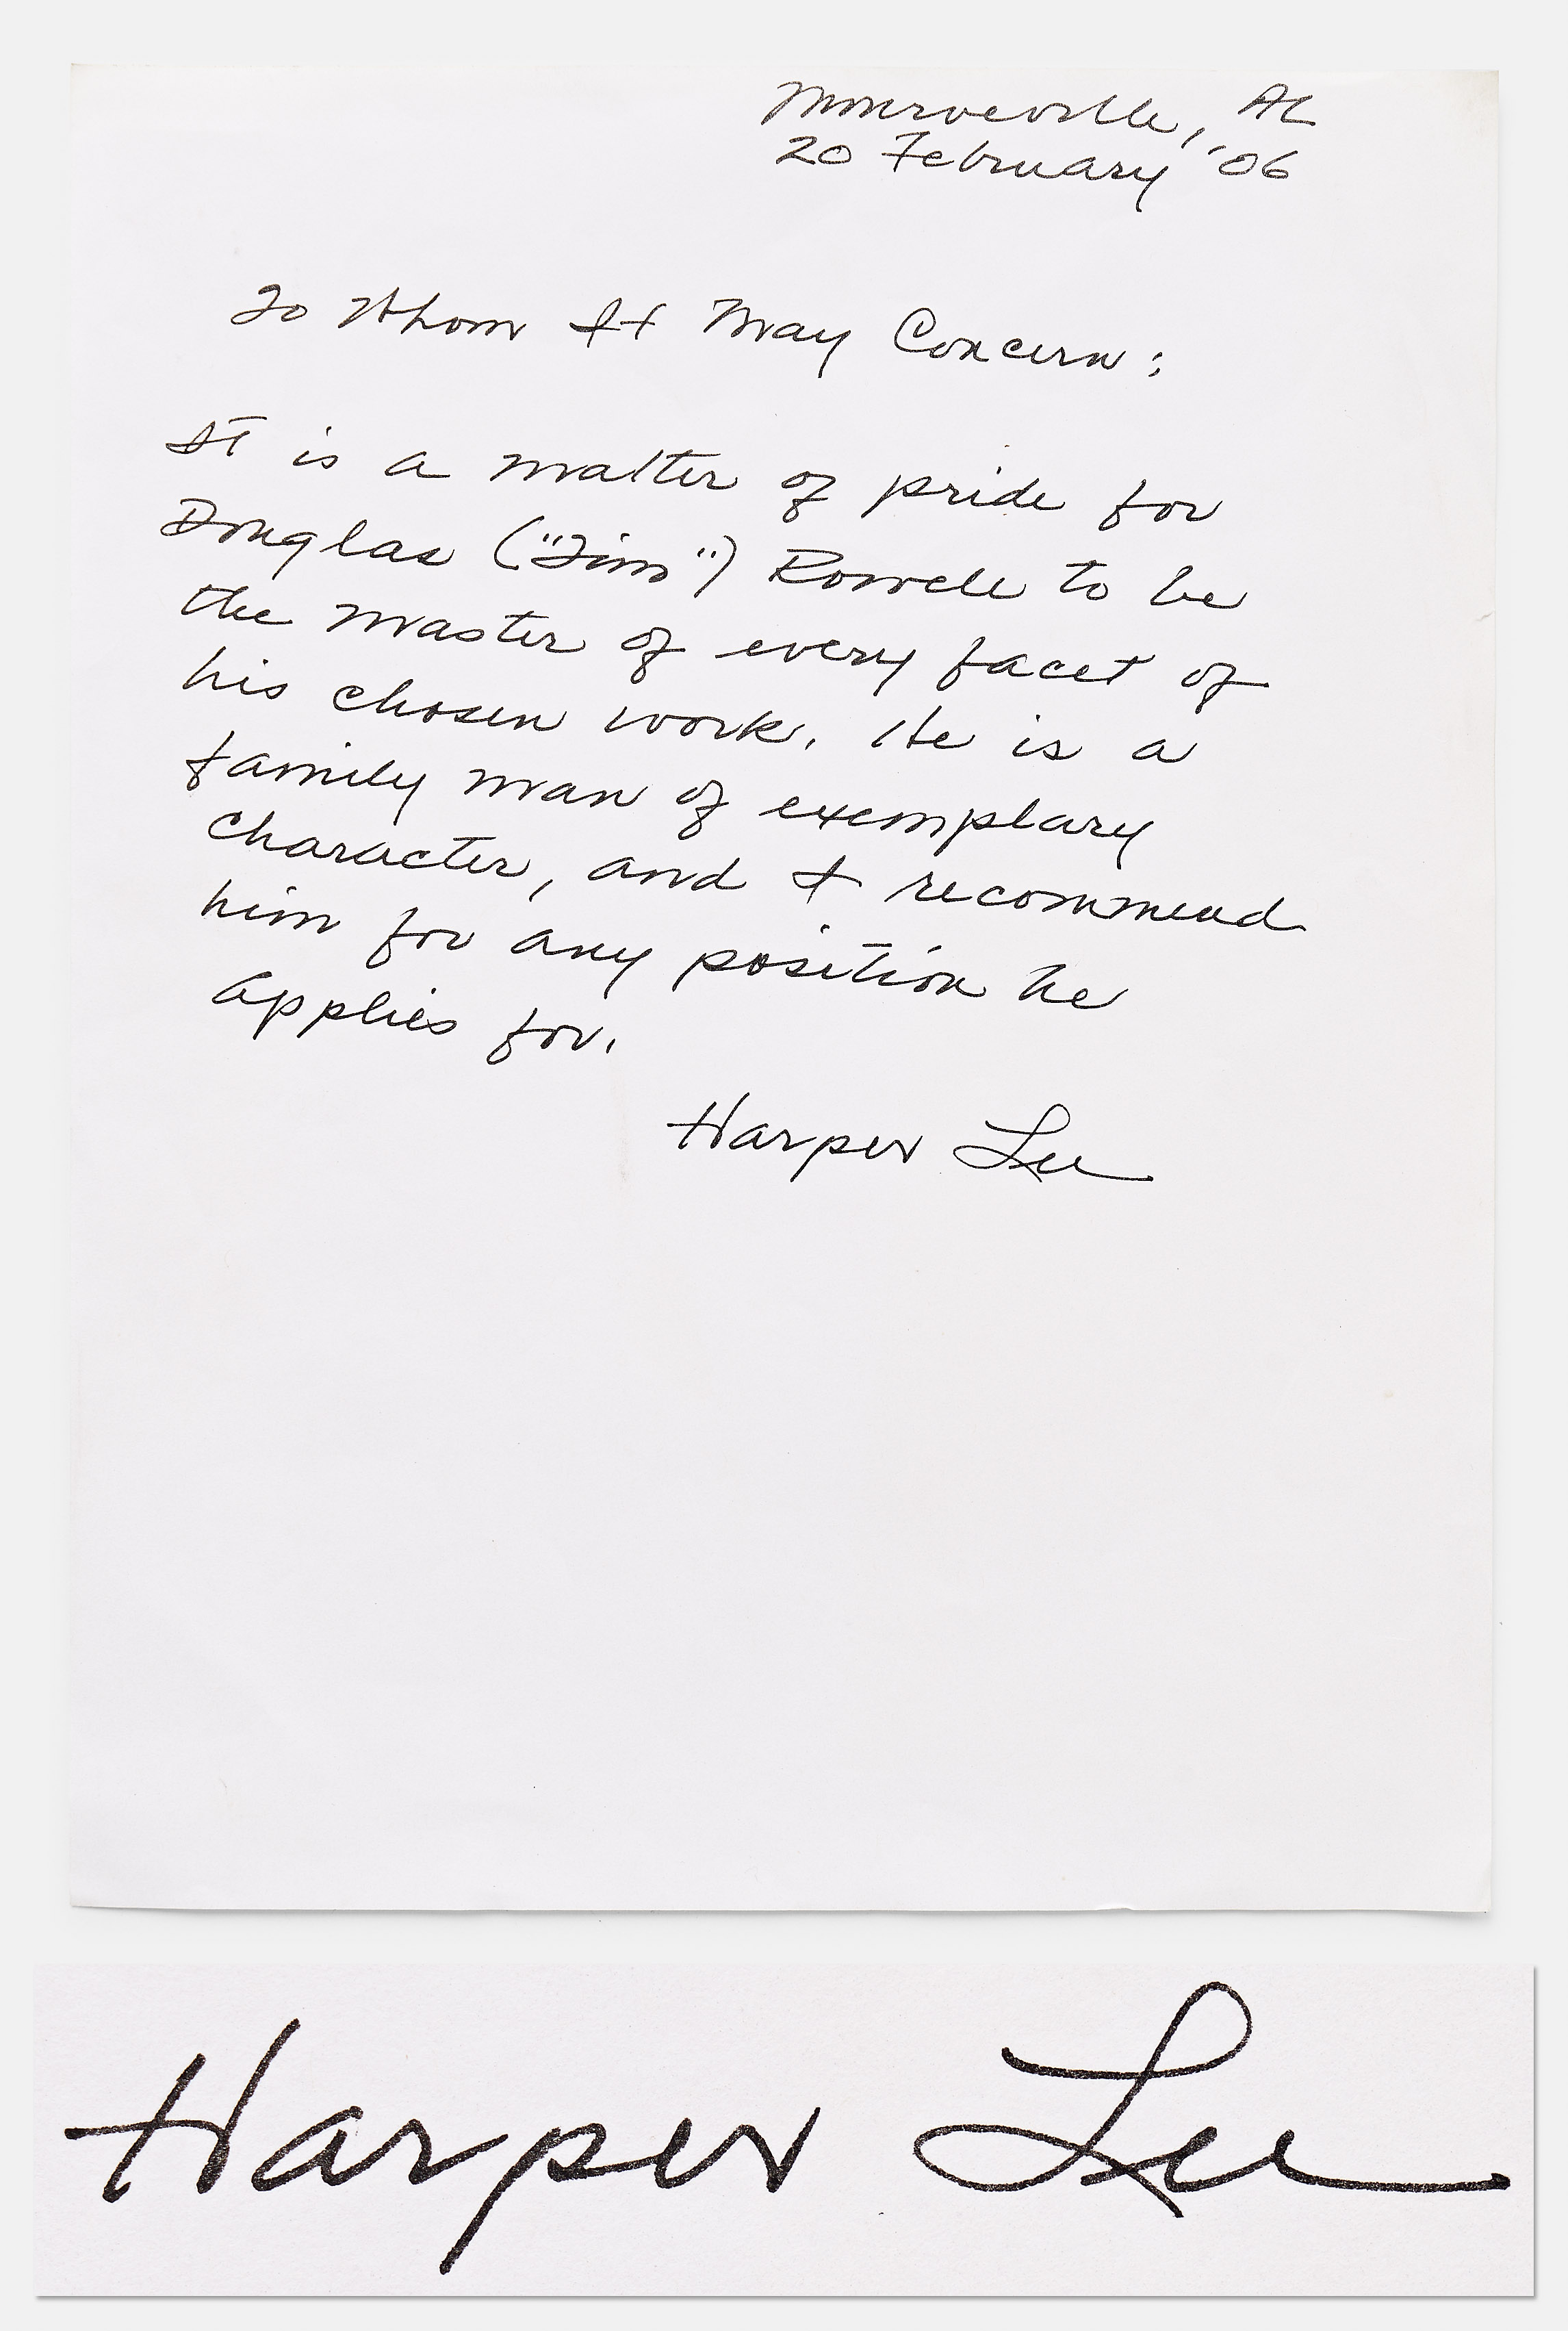 Monroeville, AL
20 February '06
To Whom It May Concern:
It is a matter of pride for
Douglas ("Jim") Rowell to be
the master of every facet of
his chosen work. He is a
family man of exemplary
character, and I recommend
him for any position he
applies for.
Harper Lee
Harper Lee